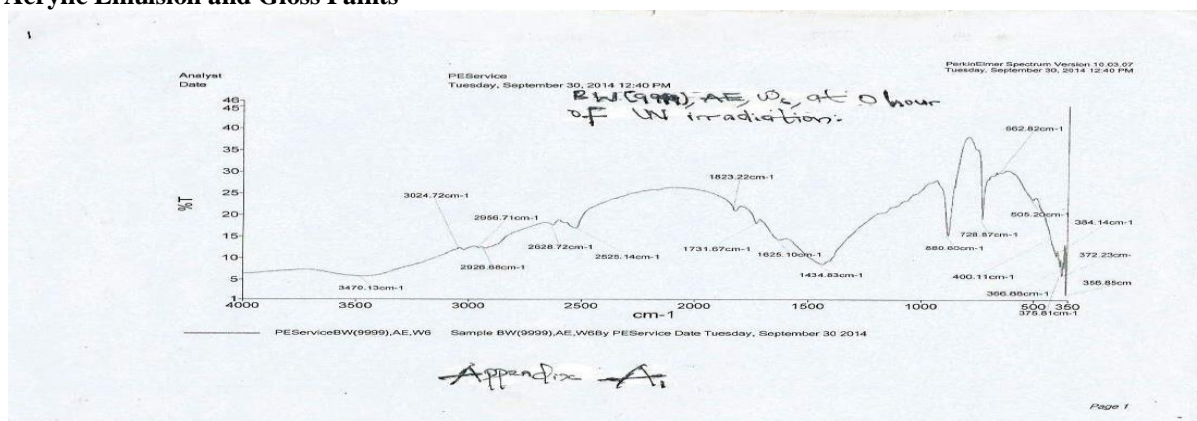 Acrylic Emulsion and Gloss Paints
1
Analyst
Date
PEService
Tuesday, September 30, 2014 12:40 PM
PerkinElmer Spectrum Version 10.03.07
Tuesday, September 30, 2014 12:40 PM
BW(9999), AE, W6, at 0 hour
of UV irradiation.
46
45
40
35
30
25
20
15
10
5
1
%T
3024.72cm-1
2956.71cm-1
2926.68cm-1
2628.72cm-1
2525.14cm-1
3470.13cm-1
1823.22cm-1
1731.67cm-1
1625.10cm-1
1434.83cm-1
662.82cm-1
605.20cm-1
384.14cm-1
728.87cm-1
880.60cm-1
372.23cm-
400.11cm-1
358.85cm
366.88cm-1
378.81cm-1
4000 3500 3000 2500 2000 1500 1000 500 350
cm-1
PEServiceBW(9999),AE,W6 Sample BW(9999),AE,W6By PEService Date Tuesday, September 30 2014
Appendix A1
Page 1